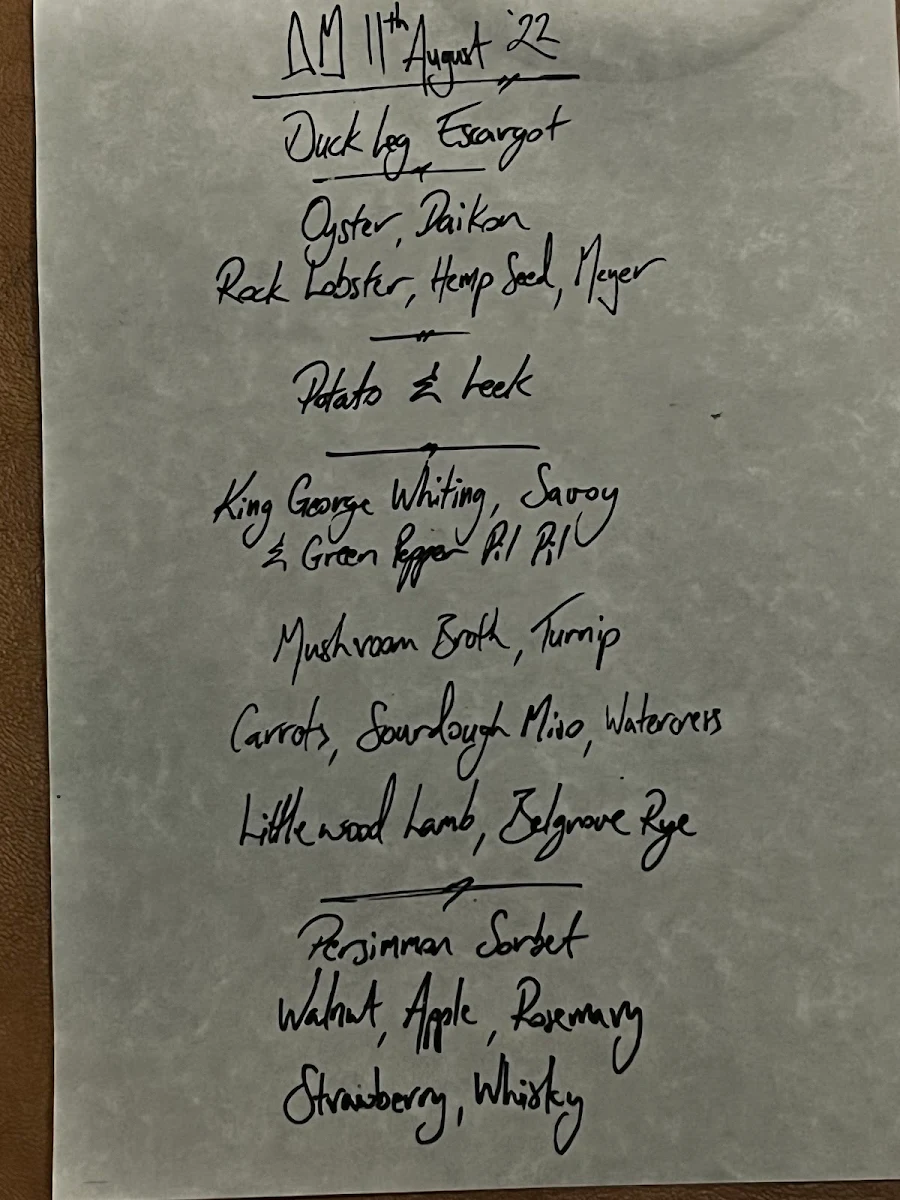 DM 11th August '22
Duck Leg Escargot
Oyster, Daikon
Rock Lobster, Hemp Seed, Meyer
Potato & Leek
King George Whiting, Savoy
& Green Pepper Pil Pil
Mushroom Broth, Turnip
Carrots, Sourdough Miso, Watercress
Littlewood Lamb, Belgrove Rye
Persimmon Sorbet
Walnut, Apple, Rosemary
Strawberry, Whisky